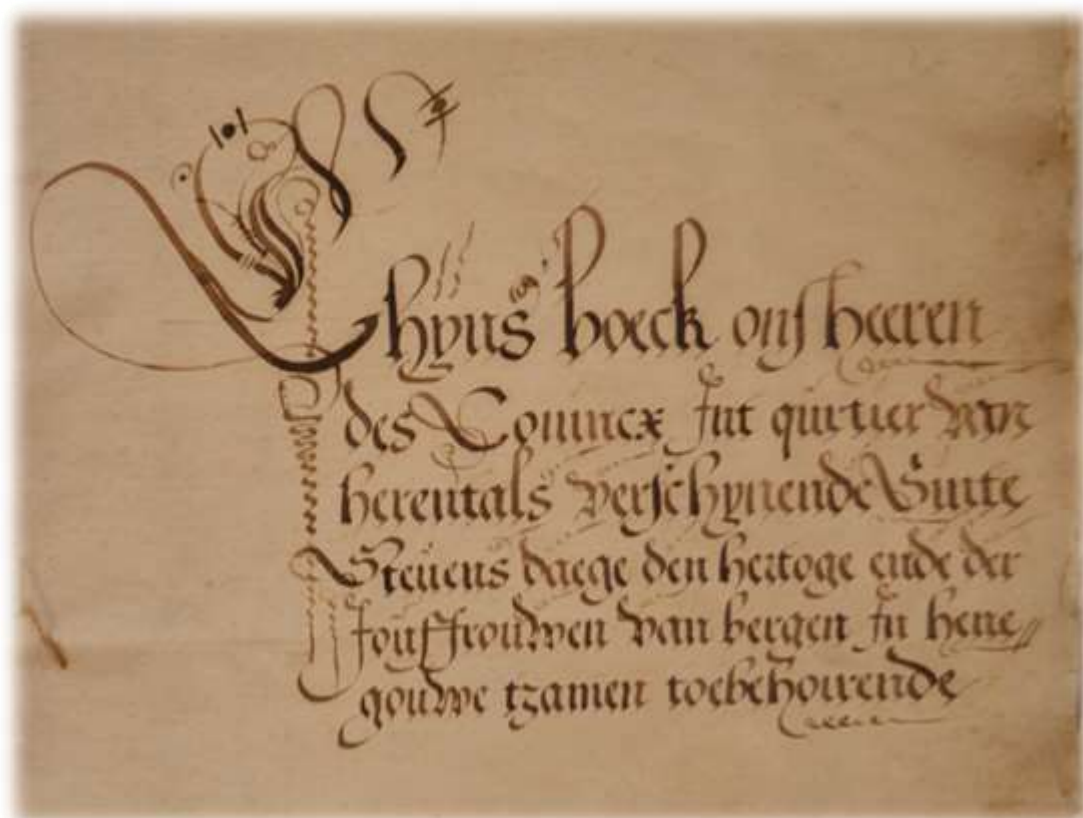 Chijns boeck ons heeren
des Conincx Int quartier van
herentals verschynende Sinte
Steuens daege den hertoge ende der
Jouffrouwen van bergen In hene//
gouwe tzamen toebehoirende